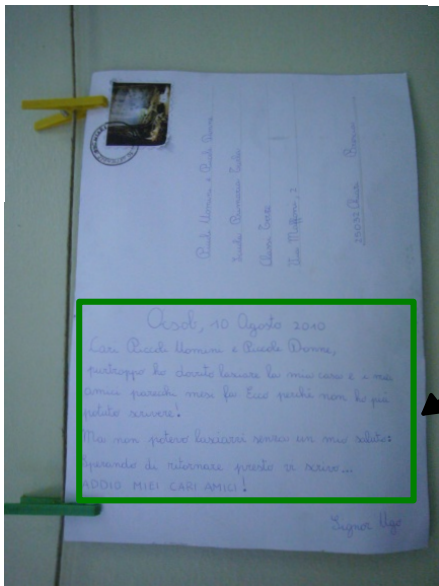 Piccoli Uomini e Piccole Donne
Scuola Primaria
Classe Terza
Via Maffoni, 2
25032 Chiari Brescia
Ocsol, 10 Agosto 2010
Cari Piccoli Uomini e Piccole Donne,
purtroppo ho dovuto lasciare la mia casa e i miei
amici parecchi mesi fa. Ecco perché non ho più
potuto scrivere!
Ma non potevo lasciarvi senza un mio saluto:
Sperando di ritornare presto vi scrivo...
ADDIO MIEI CARI AMICI!
Signor Ugo